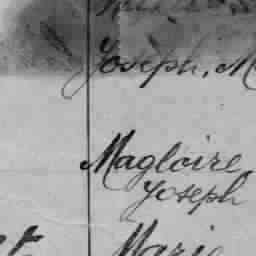 Joseph, M
Magloire
Joseph
Marie